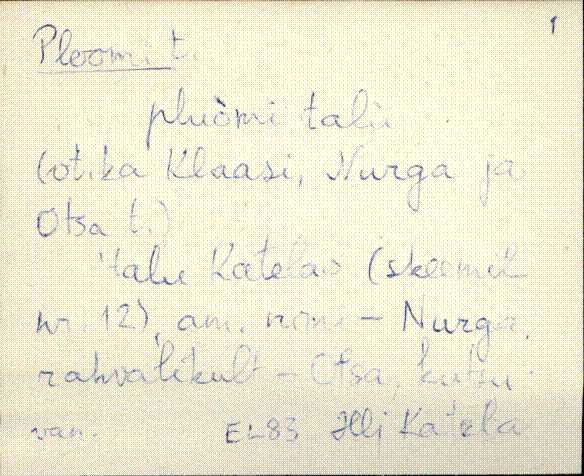 1
Ploomi t.
pluòmi talu
(vt. ka Klaasi, Nurga ja
Otsa t.)
talu Katelas (skeemil
nr. 12), am. nimi – Nurga,
rahvalikult – Otsa,
van. EL83 Illi Katela